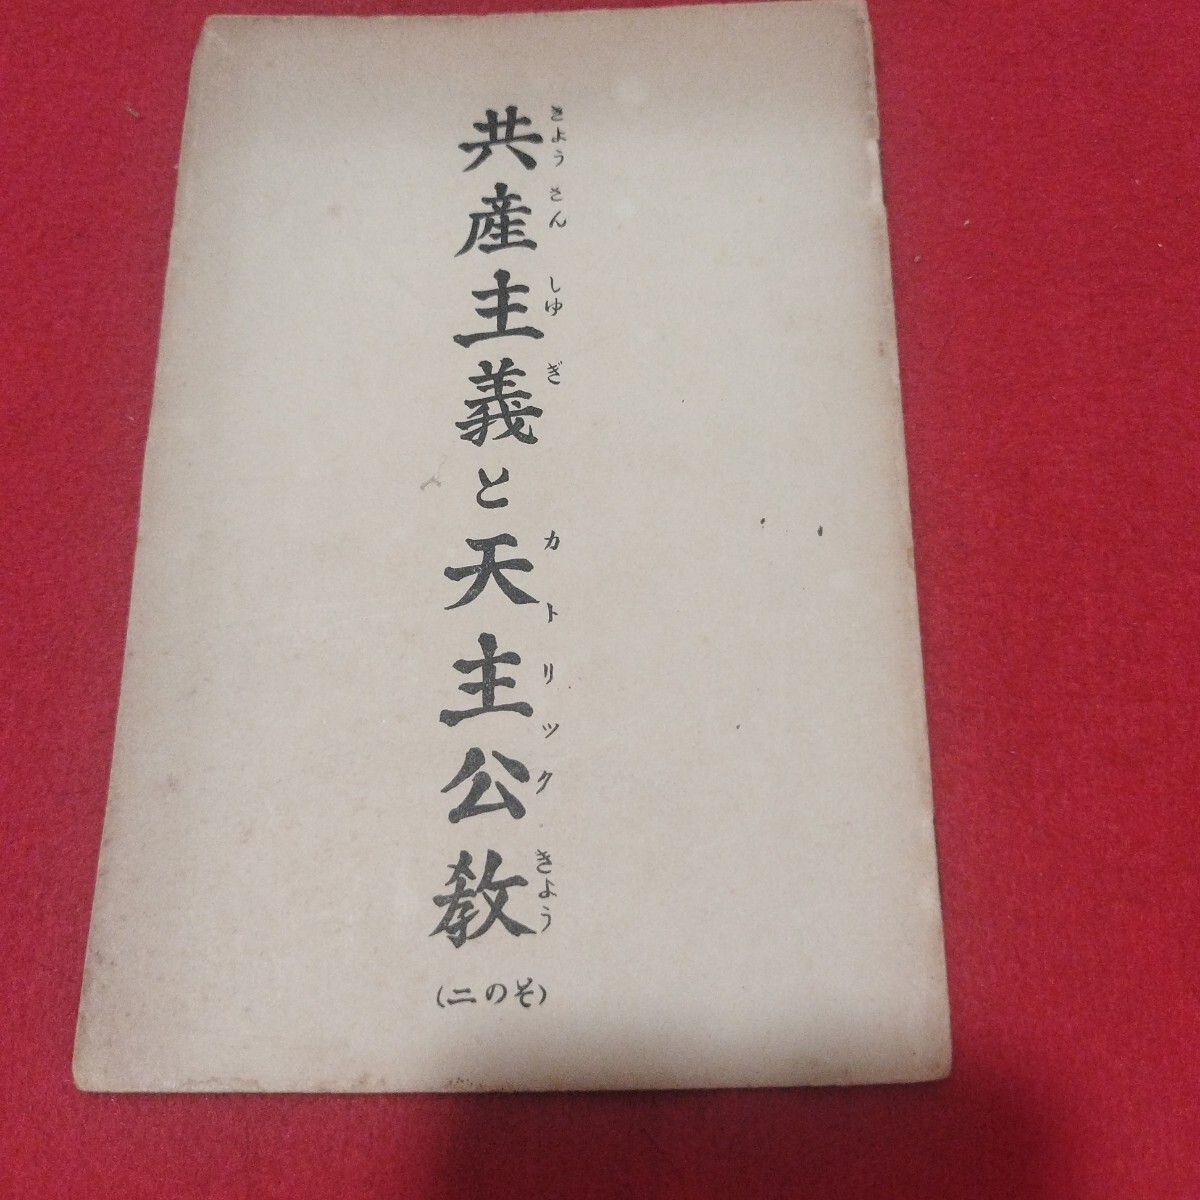 共産主義と天主公教
きようさんしゆぎ
カトリックきよう
(二のそ)